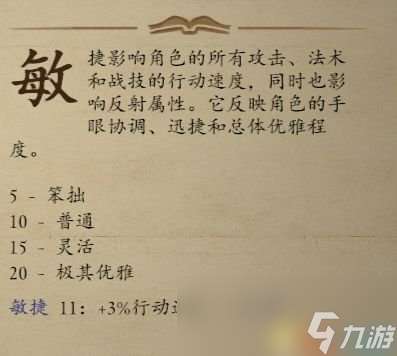 敏
捷影响角色的所有攻击、法术
和战技的行动速度，同时也影
响反射属性。它反映角色的手
眼协调、迅捷和总体优雅程
度。
5 - 笨拙
10 - 普通
15 - 灵活
20 - 极其优雅
敏捷 11：+3%行动
九游